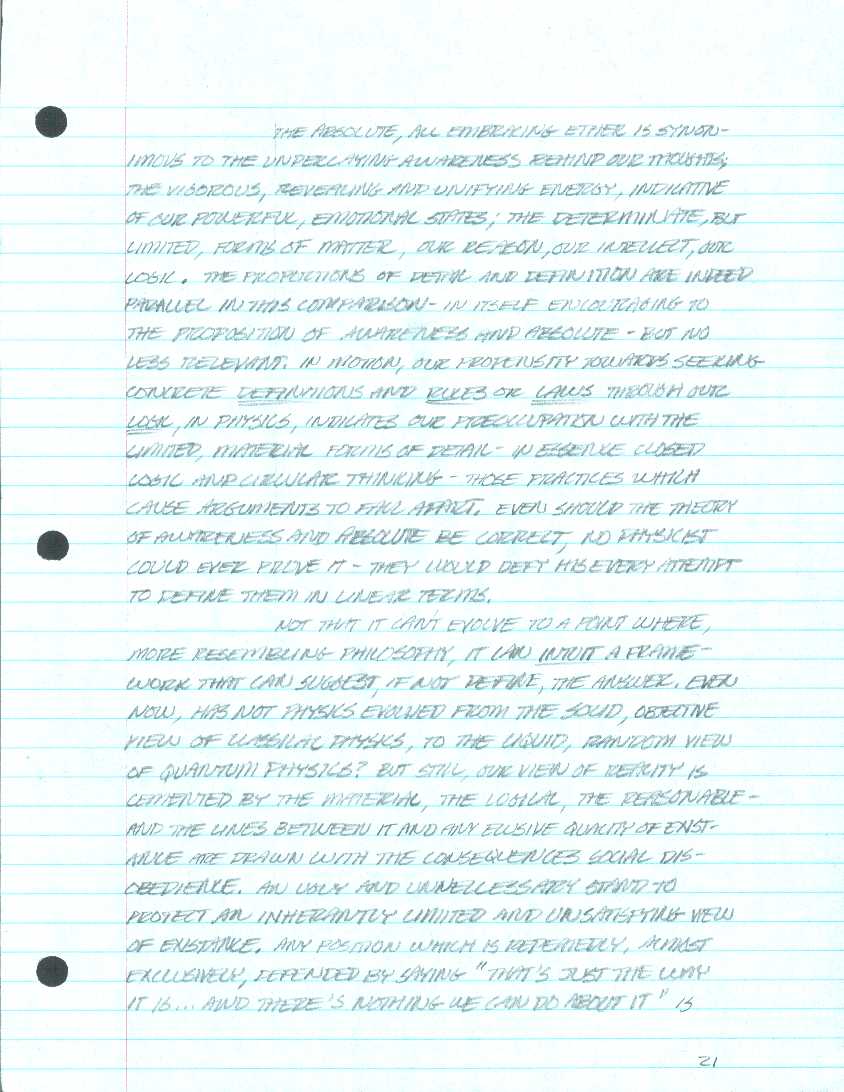 THE ABSOLUTE, ALL EMBRACING ETHER IS SYNON-
IMOUS TO THE UNDERLAYING AWARENESS BEHIND OUR THOUGHTS;
THE VIGOROUS, REVEALING AND UNIFYING ENERGY, INDICATIVE
OF OUR POWERFUL, EMOTIONAL STATES; THE DETERMINATE, BUT
LIMITED, FORMS OF MATTER, OUR REASON, OUR INTELLECT, OUR
LOGIC. THE PROPORTIONS OF DETAIL AND DEFINITION ARE INDEED
PARALLEL IN THIS COMPARISON - IN ITSELF ENCOURAGING TO
THE PROPOSITION OF AWARENESS AND ABSOLUTE - BUT NO
LESS RELEVANT. IN MOTION, OUR PROPENSITY TOWARDS SEEKING
CONCRETE DEFINITIONS AND RULES OR LAWS THROUGH OUR
LOGIC, IN PHYSICS, INDICATES OUR PREOCCUPATION WITH THE
LIMITED, MATERIAL FORMS OF DETAIL - IN ESSENCE CLOSED
LOGIC AND CIRCULAR THINKING - THOSE PRACTICES WHICH
CAUSE ARGUMENTS TO FALL APART. EVEN SHOULD THE THEORY
OF AWARENESS AND ABSOLUTE BE CORRECT, NO PHYSICIST
COULD EVER PROVE IT - THEY WOULD DEFY HIS EVERY ATTEMPT
TO DEFINE THEM IN LINEAR TERMS.
NOT THAT IT CAN'T EVOLVE TO A POINT WHERE,
MORE RESEMBLING PHILOSOPHY, IT CAN INTUIT A FRAME-
WORK THAT CAN SUGGEST, IF NOT DEFINE, THE ANSWER. EVEN
NOW, HAS NOT PHYSICS EVOLVED FROM THE SOLID, OBJECTIVE
VIEW OF CLASSICAL PHYSICS, TO THE LIQUID, RANDOM VIEW
OF QUANTUM PHYSICS? BUT STILL, OUR VIEW OF REALITY IS
CEMENTED BY THE MATERIAL, THE LOGICAL, THE REASONABLE -
AND THE LINES BETWEEN IT AND ANY ELUSIVE QUALITY OF EXIST-
ANCE ARE DRAWN WITH THE CONSEQUENCES SOCIAL DIS-
OBEDIENCE. AN UGLY AND UNNECESSARY STAND TO
PROTECT AN INHERANTLY LIMITED AND UNSATISFYING VIEW
OF EXISTANCE. ANY POSITION WHICH IS REPEATEDLY, ALMOST
EXCLUSIVELY, DEFENDED BY SAYING "THAT'S JUST THE WAY
IT IS... AND THERE'S NOTHING WE CAN DO ABOUT IT" IS
21